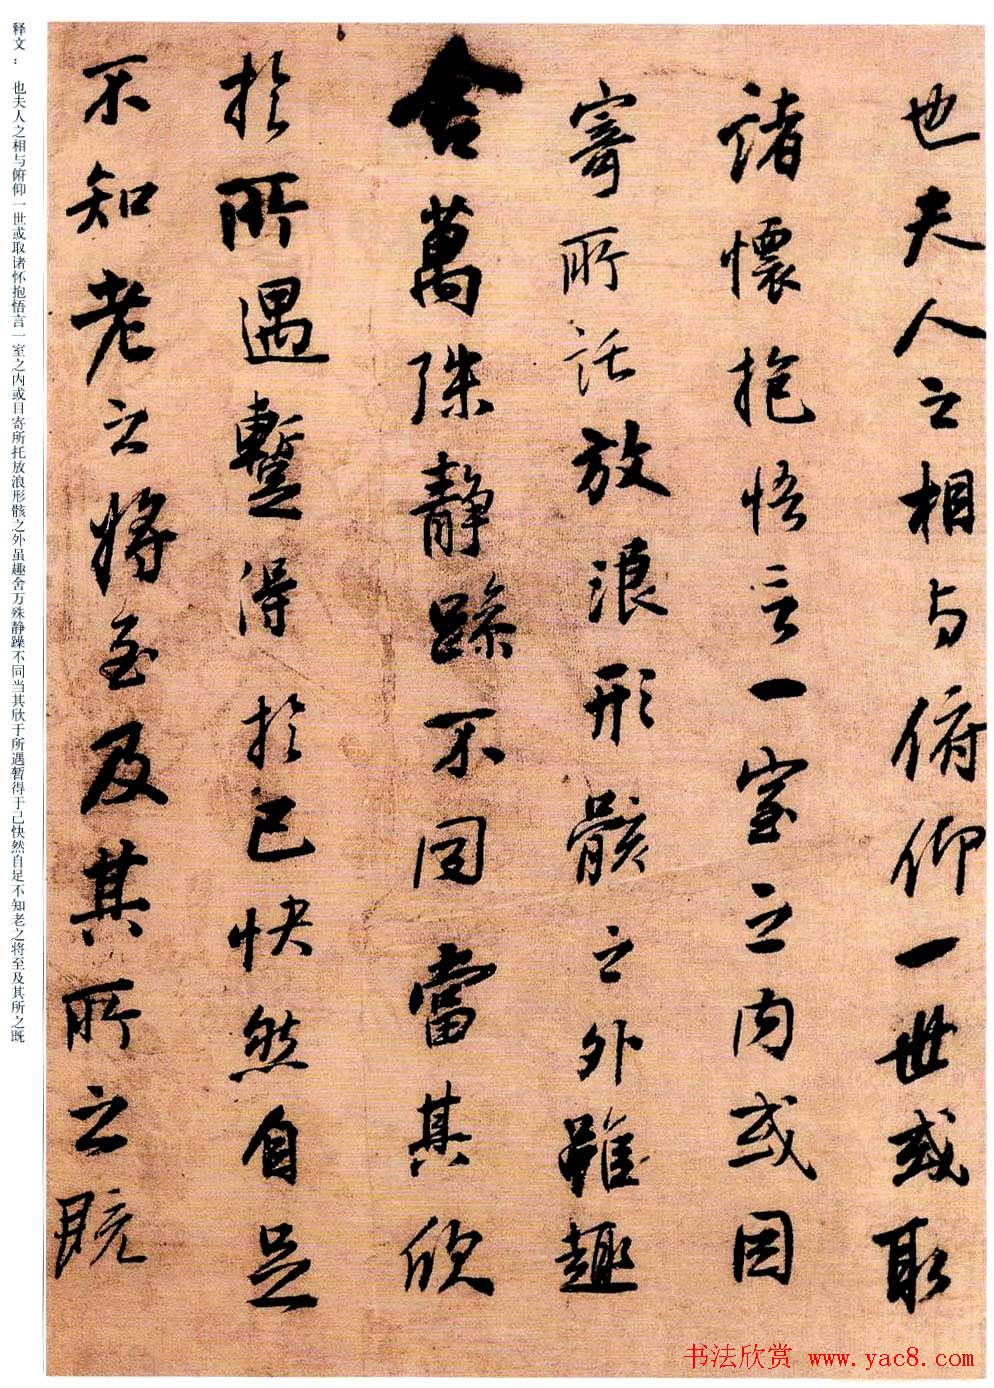 也夫人之相与俯仰一世或取
諸懷抱悟言一室之内或因
寄所託放浪形骸之外雖趣
舍萬殊静躁不同當其欣
於所遇蹔得於己快然自足
不知老之將至及其所之既
释文： 也夫人之相与俯仰一世或取诸怀抱悟言一室之内或目寄所托放浪形骸之外虽趣舍万殊静躁不同当其欣于所遇暂得于己快然自足不知老之将至及其所之既
书法欣赏 www.yac8.com